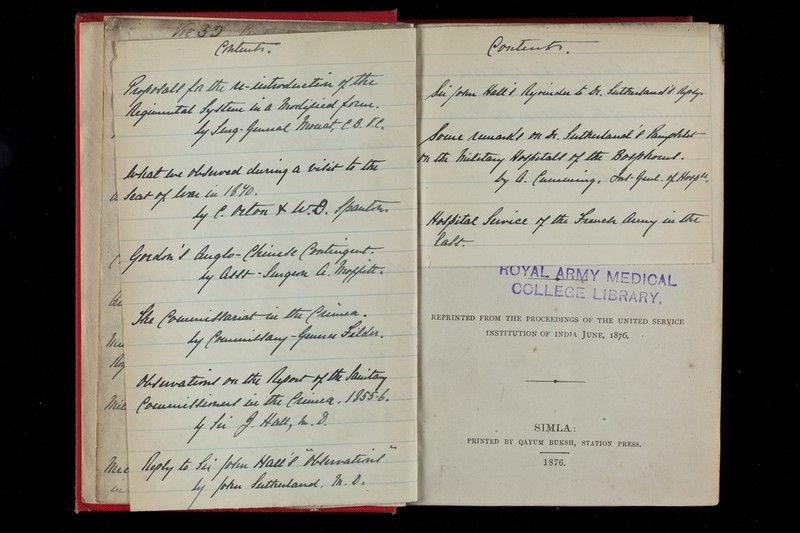 Contents.
Proposals for the re-introduction of the
Regimental System in a modified form.
by Surg-General Mouat, C.B. V.C.
What we observed during a visit to the
Seat of War in 1870.
by C. Orton & W.D. Spanton
Gordon's Anglo-Chinese Contingent.
by Asst-Surgeon A. Moffitt.
The Commissariat in the Crimea.
by Commissary-General Filder.
Observations on the Report of the Sanitary
Commissioners in the Crimea. 1855-6.
by Sir J. Hall, M.D.
Reply to Sir John Hall's "Observations"
by John Sutherland. M.D.
Contents.
Sir John Hall's Rejoinder to Dr. Sutherland's Reply.
Some remarks on Dr. Sutherland's Pamphlet
on the Military Hospitals of the Bosphorus.
by A. Cumming, Int-Genl. of Hospls.
Hospital Service of the French Army in the
East.
ROYAL ARMY MEDICAL
COLLEGE LIBRARY.
REPRINTED FROM THE PROCEEDINGS OF THE UNITED SERVICE
INSTITUTION OF INDIA JUNE, 1876.
SIMLA:
PRINTED BY QAYUM BUKSH, STATION PRESS.
1876.